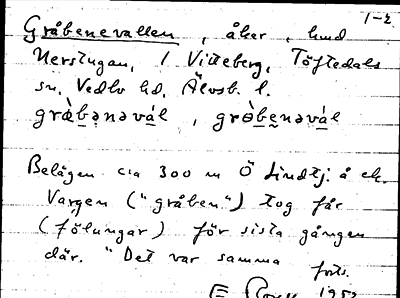 1-2
Gråbenevallen, åker, hmd
Nerstugan, 1 Vitteberg, Töftedals
sn, Vedbo hd, Älvsb. l.
gràbənəvál, gròbenəvál
Belägen c:a 300 m Ö Lindtj. å ek.
Vargen ("gråben") tog får
(fölungar) för sista gången
där. "Det var samma
forts.
1952